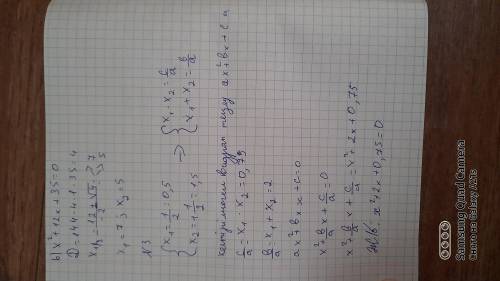 b) x²+12x+35=0
D=144-4·1·35=4
x₁/₂=
x₁=7; x₂=5
N3
{x₁=1/2=0,5
{x₂=1 1/2=1,5
=> {x₁·x₂=c/a
{x₁+x₂=b/a
ax²+bx+c
c/a=x₁·x₂=0,75
b/a=x₁+x₂=2
ax²+bx+c=0
x²+b/a x+c/a=0
x²+b/a x+c/a=x²+2x+0,75
x²+2x+0,75=0
Samsung Quad Camera
Снято на Galaxy A71s